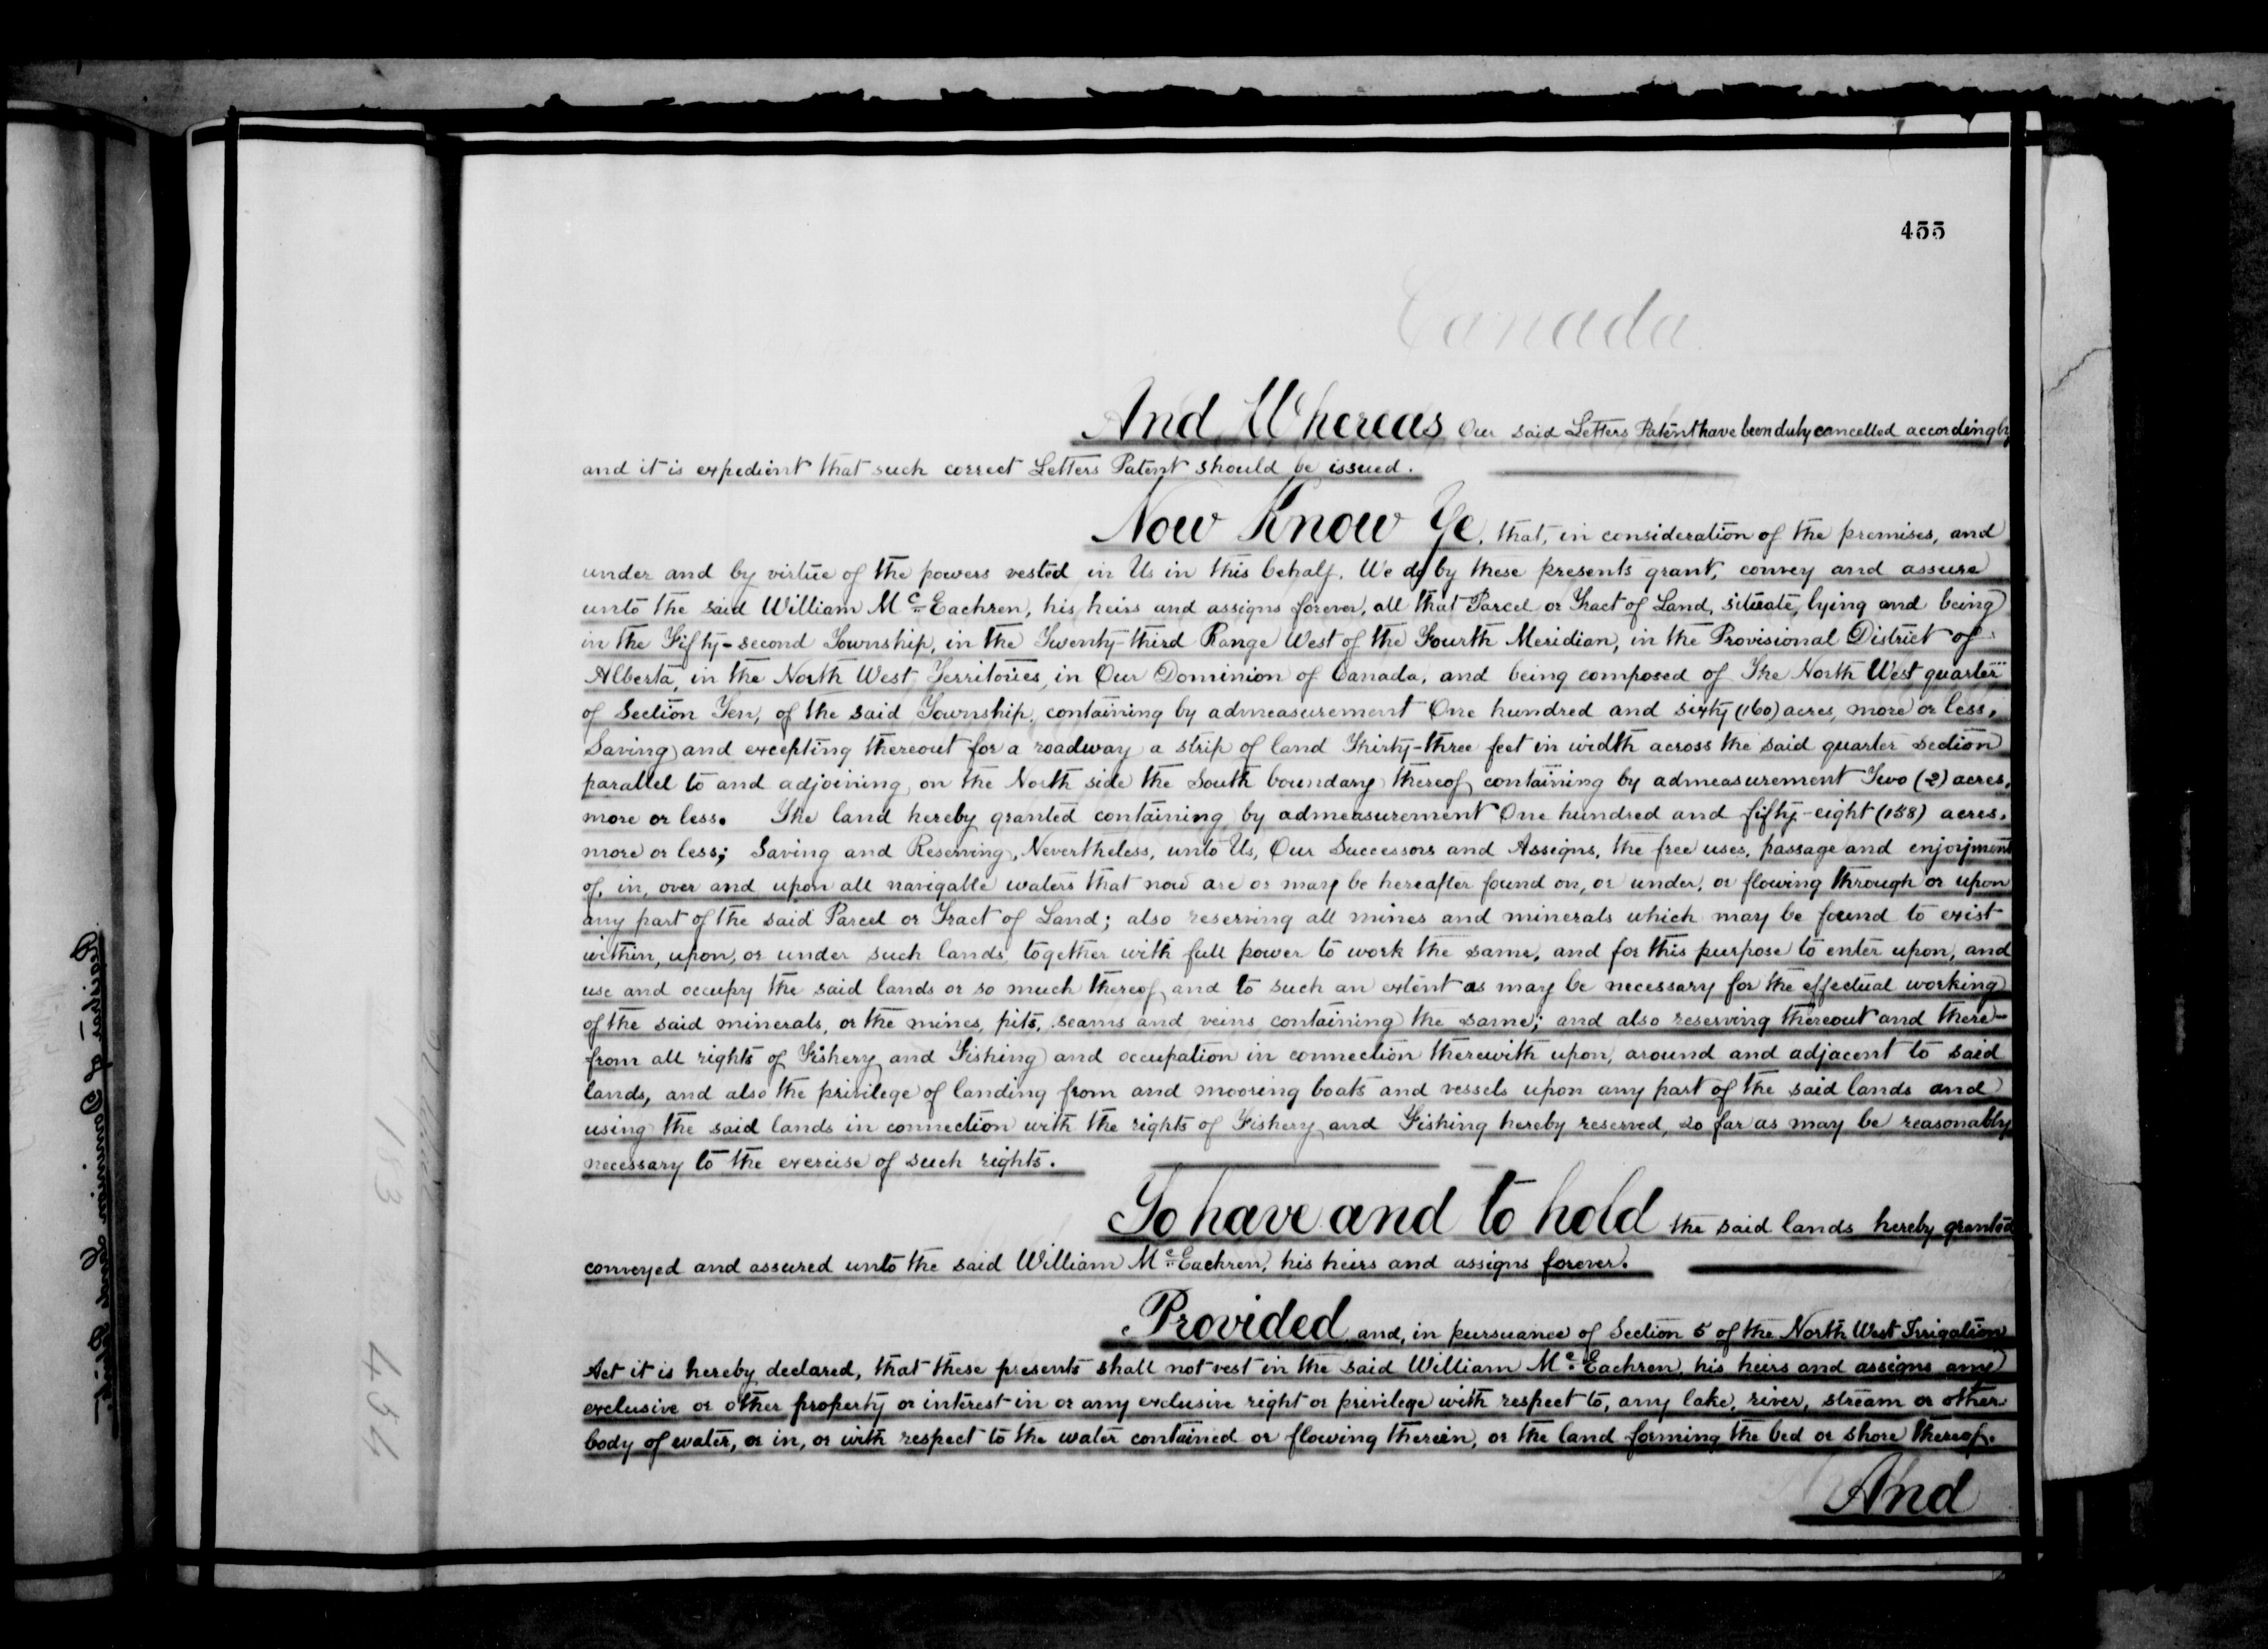 455
Canada
And Whereas Our said Letters Patent have been duly cancelled accordingly
and it is expedient that such correct Letters Patent should be issued.
Now Know Ye, that, in consideration of the premises, and
under and by virtue of the powers vested in Us in this behalf, We do by these presents grant, convey and assure
unto the said William Mc Eachren, his heirs and assigns forever, all that Parcel or Tract of Land, situate, lying and being
in the Fifty-second Township, in the Twenty-third Range West of the Fourth Meridian, in the Provisional District of
Alberta, in the North West Territories, in Our Dominion of Canada, and being composed of The North West quarter
of Section Ten, of the said Township, containing by admeasurement One hundred and sixty (160) acres, more or less,
Saving and excepting thereout for a roadway a strip of land Thirty-three feet in width across the said quarter section
parallel to and adjoining, on the North side the South boundary thereof, containing by admeasurement Two (2) acres,
more or less. The land hereby granted containing by admeasurement One hundred and fifty-eight (158) acres,
more or less; Saving and Reserving, Nevertheless, unto Us, Our Successors and Assigns, the free uses, passage and enjoyment
of, in, over and upon all navigable waters that now are or may be hereafter found on, or under, or flowing through or upon
any part of the said Parcel or Tract of Land; also reserving all mines and minerals which may be found to exist
within, upon, or under such lands, together with full power to work the same, and for this purpose to enter upon, and
use and occupy the said lands or so much thereof, and to such an extent as may be necessary for the effectual working
of the said minerals, or the mines, pits, seams and veins containing the same; and also reserving thereout and there-
from all rights of Fishery and Fishing and occupation in connection therewith upon, around and adjacent to said
lands, and also the privilege of landing from and mooring boats and vessels upon any part of the said lands and
using the said lands in connection with the rights of Fishery and Fishing hereby reserved, so far as may be reasonably
necessary to the exercise of such rights.
To have and to hold the said lands hereby granted
conveyed and assured unto the said William Mc Eachren, his heirs and assigns forever.
Provided and, in pursuance of Section 5 of the North West Irrigation
Act it is hereby declared, that these presents shall not vest in the said William Mc Eachren, his heirs and assigns any
exclusive or other property or interest in or any exclusive right or privilege with respect to, any lake, river, stream or other
body of water, or in, or with respect to the water contained or flowing therein, or the land forming the bed or shore thereof.
And
183
454
Register of Dominion Lands Patents